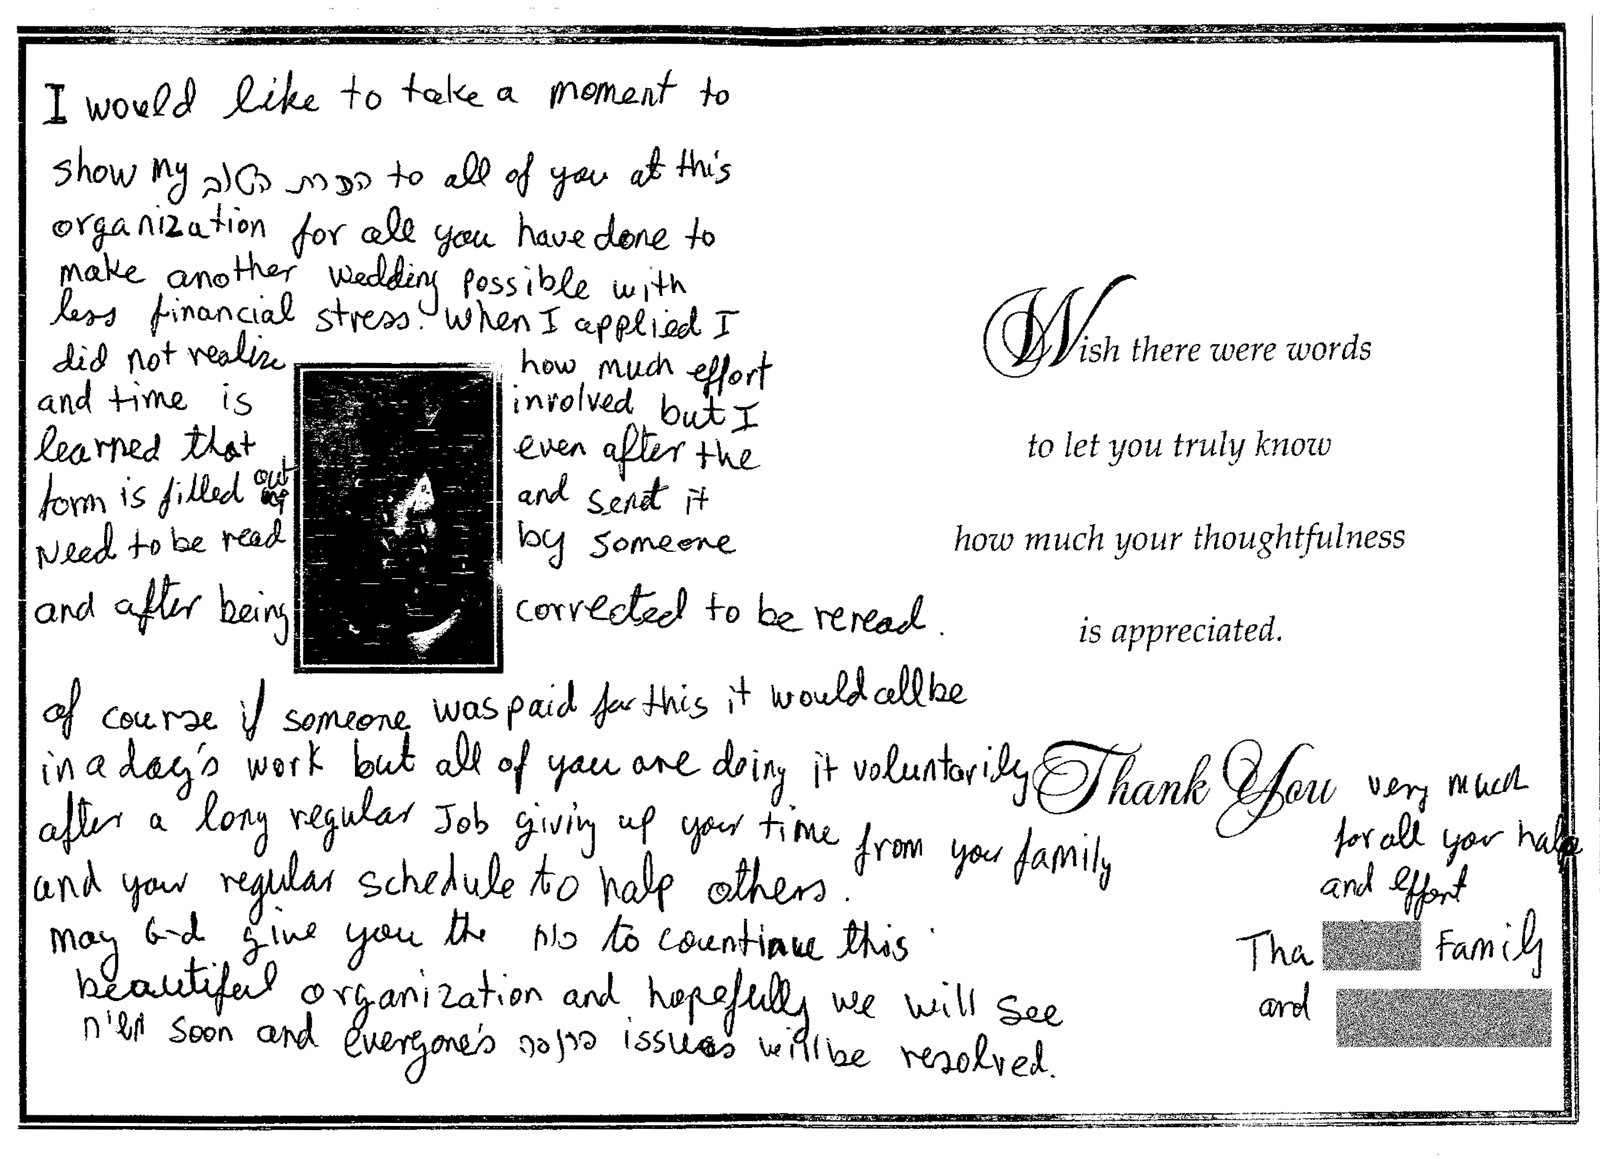 I would like to take a moment to
show my הכרת הטוב to all of you at this
organization for all you have done to
make another wedding possible with
less financial stress. When I applied I
did not realize how much effort
and time is involved but I
learned that even after the
form is filled out and send it
Need to be read by someone
and after being corrected to be reread.
of course if someone was paid for this it would all be
in a day's work but all of you are doing it voluntarily
after a long regular Job giving up your time from your family
and your regular schedule to help others.
may G-d give you the כח to countinue this
beautiful organization and hopefully we will see
משיח soon and everyone's פרנסה issues will be resolved.
Wish there were words
to let you truly know
how much your thoughtfulness
is appreciated.
Thank You very much
for all your help
and effort
The Family
and